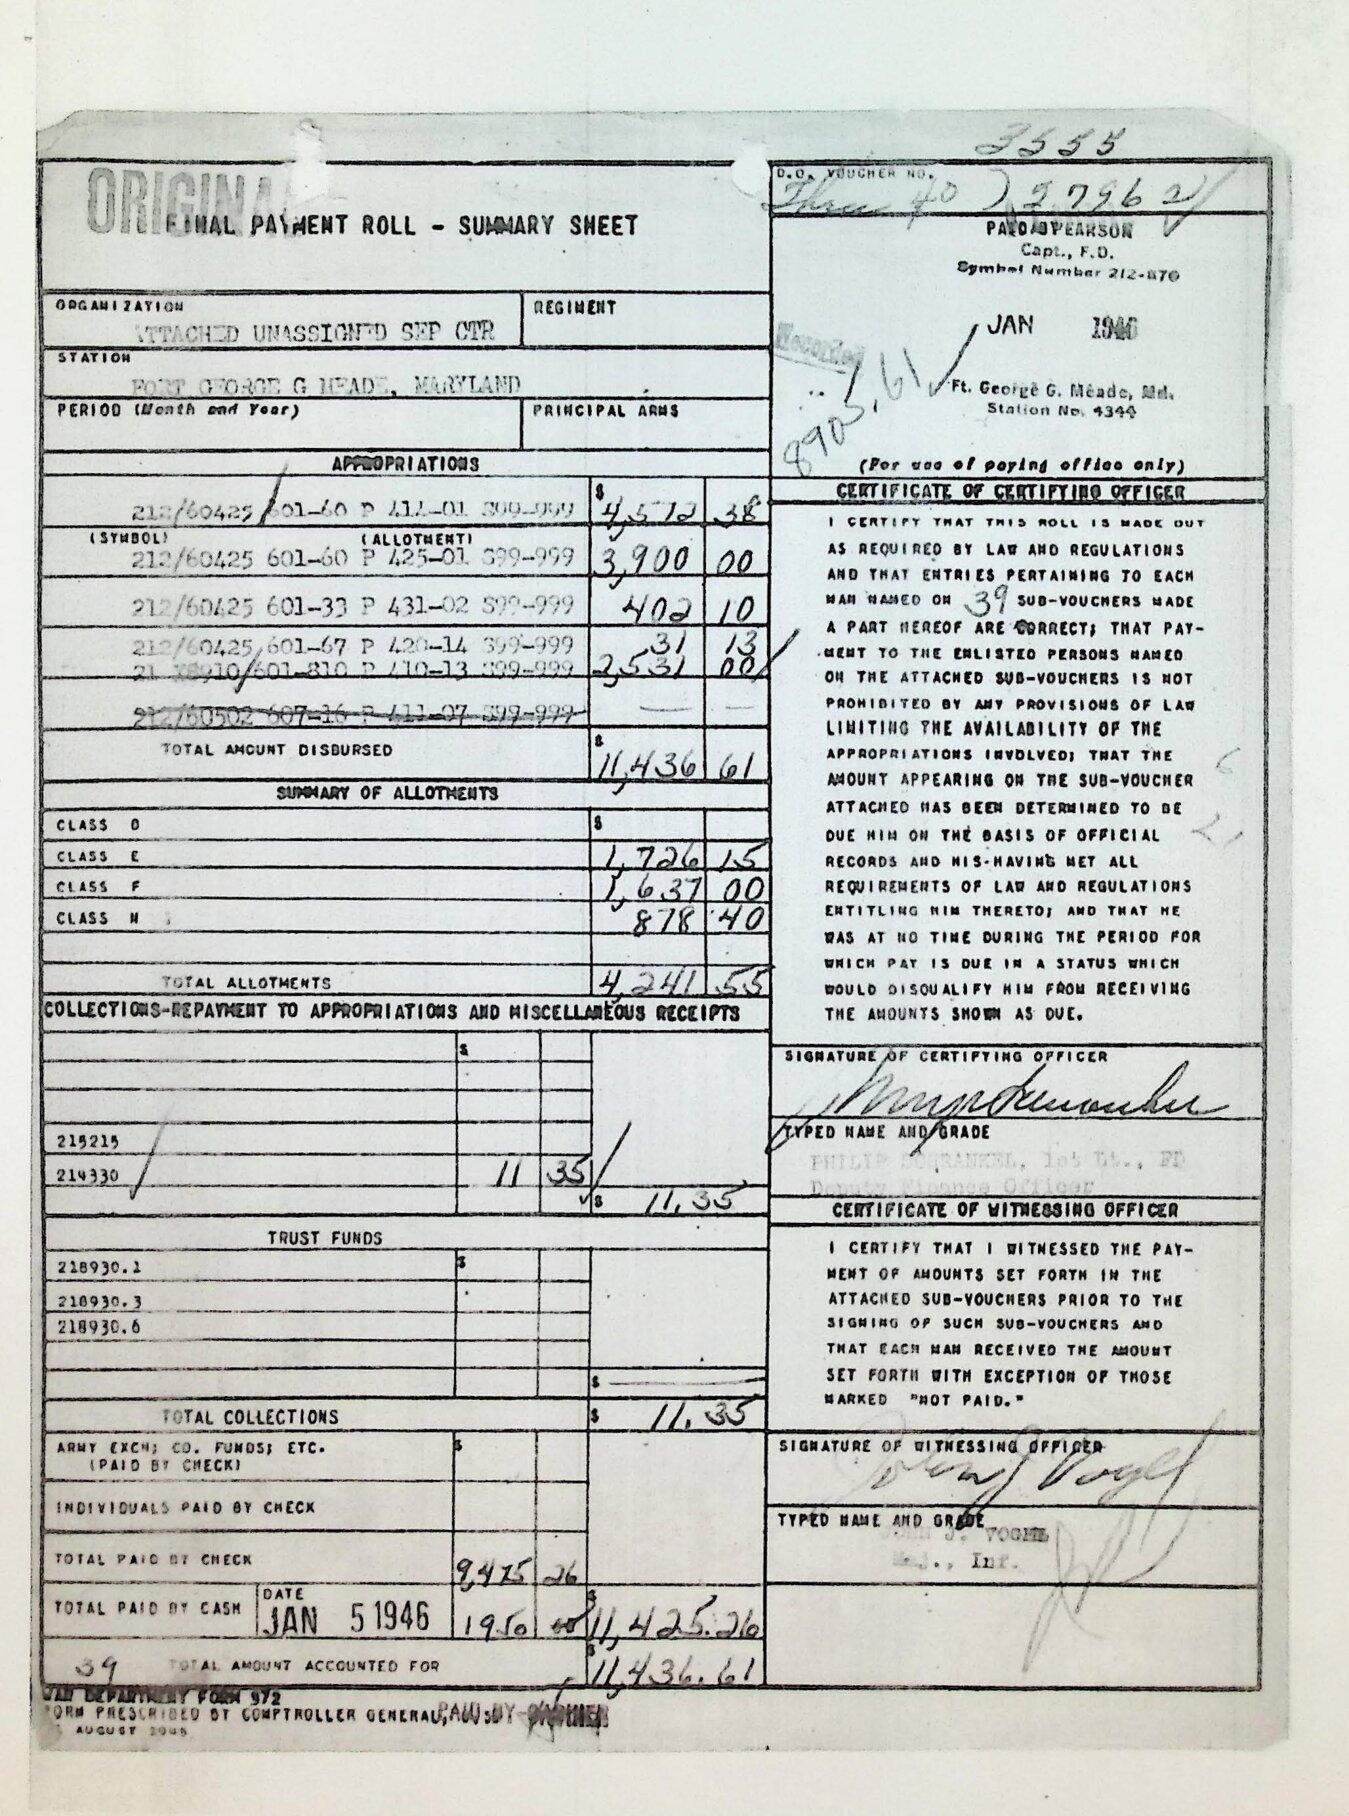 3555
ORIGINAL
FINAL PAYMENT ROLL - SUMMARY SHEET
D.O. VOUCHER NO.
Thru 40 ) 27962
PAID BY PEARSON
Capt., F.D.
Symbol Number 212-870
ORGANIZATION
ATTACHED UNASSIGNED SEP CTR
REGIMENT
JAN 1946
Recorded
8905.61
STATION
FORT GEORGE G MEADE, MARYLAND
Ft. George G. Meade, Md.
Station No. 4344
PERIOD (Month and Year)
PRINCIPAL ARMS
(For use of paying office only)
APPROPRIATIONS
212/60425 601-60 P 414-01 S99-999 $ 4,572 38
(SYMBOL) (ALLOTMENT)
212/60425 601-60 P 425-01 S99-999 3,900 00
212/60425 601-33 P 431-02 S99-999 402 10
212/60425 601-67 P 420-14 S99-999 31 13
21 X8910/601-810 P 410-13 S99-999 2,531 00
212/60502 607-16 P 411-07 S99-999 — —
TOTAL AMOUNT DISBURSED $ 11,436 61
SUMMARY OF ALLOTMENTS
CLASS D $
CLASS E 1,726 15
CLASS F 1,637 00
CLASS N 878 40
TOTAL ALLOTMENTS 4,241 55
COLLECTIONS-REPAYMENT TO APPROPRIATIONS AND MISCELLANEOUS RECEIPTS
$
215215
214330 11 35
$ 11.35
TRUST FUNDS
218930.1 $
218930.3
218930.6
$ —
TOTAL COLLECTIONS $ 11.35
ARMY EXCH; CO. FUNDS; ETC. $
(PAID BY CHECK)
INDIVIDUALS PAID BY CHECK
TOTAL PAID BY CHECK 9,475 26
TOTAL PAID BY CASH DATE JAN 5 1946 1950 00 $ 11,425.26
39 TOTAL AMOUNT ACCOUNTED FOR $ 11,436.61
WAR DEPARTMENT FORM 372
FORM PRESCRIBED BY COMPTROLLER GENERAL, U.S. PAID BY
AUGUST 1945
CERTIFICATE OF CERTIFYING OFFICER
I CERTIFY THAT THIS ROLL IS MADE OUT
AS REQUIRED BY LAW AND REGULATIONS
AND THAT ENTRIES PERTAINING TO EACH
MAN NAMED ON 39 SUB-VOUCHERS MADE
A PART HEREOF ARE CORRECT; THAT PAY-
MENT TO THE ENLISTED PERSONS NAMED
ON THE ATTACHED SUB-VOUCHERS IS NOT
PROHIBITED BY ANY PROVISIONS OF LAW
LIMITING THE AVAILABILITY OF THE
APPROPRIATIONS INVOLVED; THAT THE
AMOUNT APPEARING ON THE SUB-VOUCHER
ATTACHED HAS BEEN DETERMINED TO BE
DUE HIM ON THE BASIS OF OFFICIAL
RECORDS AND HIS-HAVING MET ALL
REQUIREMENTS OF LAW AND REGULATIONS
ENTITLING HIM THERETO; AND THAT HE
WAS AT NO TIME DURING THE PERIOD FOR
WHICH PAY IS DUE IN A STATUS WHICH
WOULD DISQUALIFY HIM FROM RECEIVING
THE AMOUNTS SHOWN AS DUE.
SIGNATURE OF CERTIFYING OFFICER
TYPED NAME AND GRADE
PHILIP SCHRANKEL, 1st Lt., FD
Deputy Finance Officer
CERTIFICATE OF WITNESSING OFFICER
I CERTIFY THAT I WITNESSED THE PAY-
MENT OF AMOUNTS SET FORTH IN THE
ATTACHED SUB-VOUCHERS PRIOR TO THE
SIGNING OF SUCH SUB-VOUCHERS AND
THAT EACH MAN RECEIVED THE AMOUNT
SET FORTH WITH EXCEPTION OF THOSE
MARKED "NOT PAID."
SIGNATURE OF WITNESSING OFFICER
John J Vogel
TYPED NAME AND GRADE
JOHN J. VOGEL
Maj., Inf.